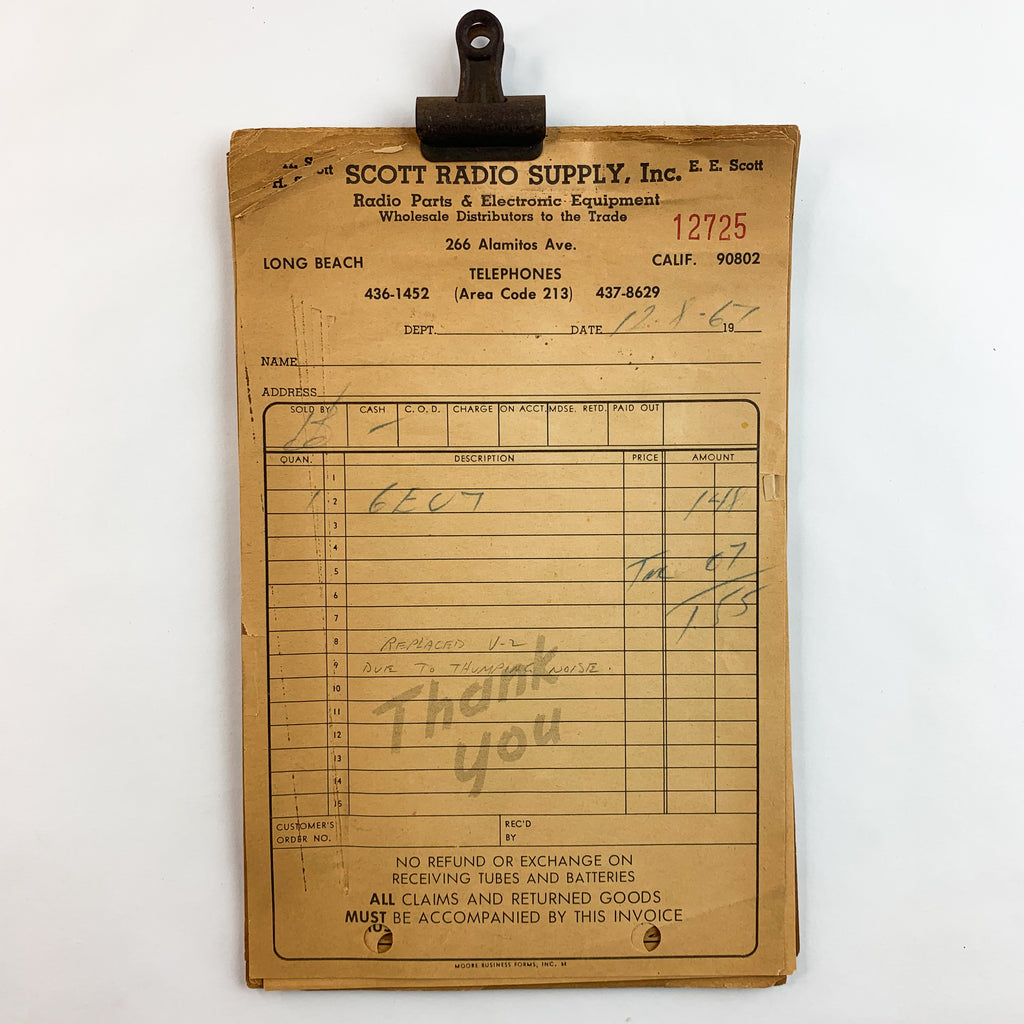 SCOTT RADIO SUPPLY, Inc. E. E. Scott
Radio Parts & Electronic Equipment
Wholesale Distributors to the Trade
12725
266 Alamitos Ave.
LONG BEACH CALIF. 90802
TELEPHONES
436-1452 (Area Code 213) 437-8629
DEPT. DATE 12-8-67 19
NAME
ADDRESS
SOLD BY CASH C. O. D. CHARGE ON ACCT. MDSE. RETD. PAID OUT
QUAN. DESCRIPTION PRICE AMOUNT
1
1 2 6EU7 1 48
3
4
5 Tax 07
6
7 1 55
8 REPLACED V-2
9 DUE TO THUMPING NOISE.
10
11
12
13
14
15
Thank
you
CUSTOMER'S
ORDER NO.
REC'D
BY
NO REFUND OR EXCHANGE ON
RECEIVING TUBES AND BATTERIES
ALL CLAIMS AND RETURNED GOODS
MUST BE ACCOMPANIED BY THIS INVOICE
MOORE BUSINESS FORMS, INC. M